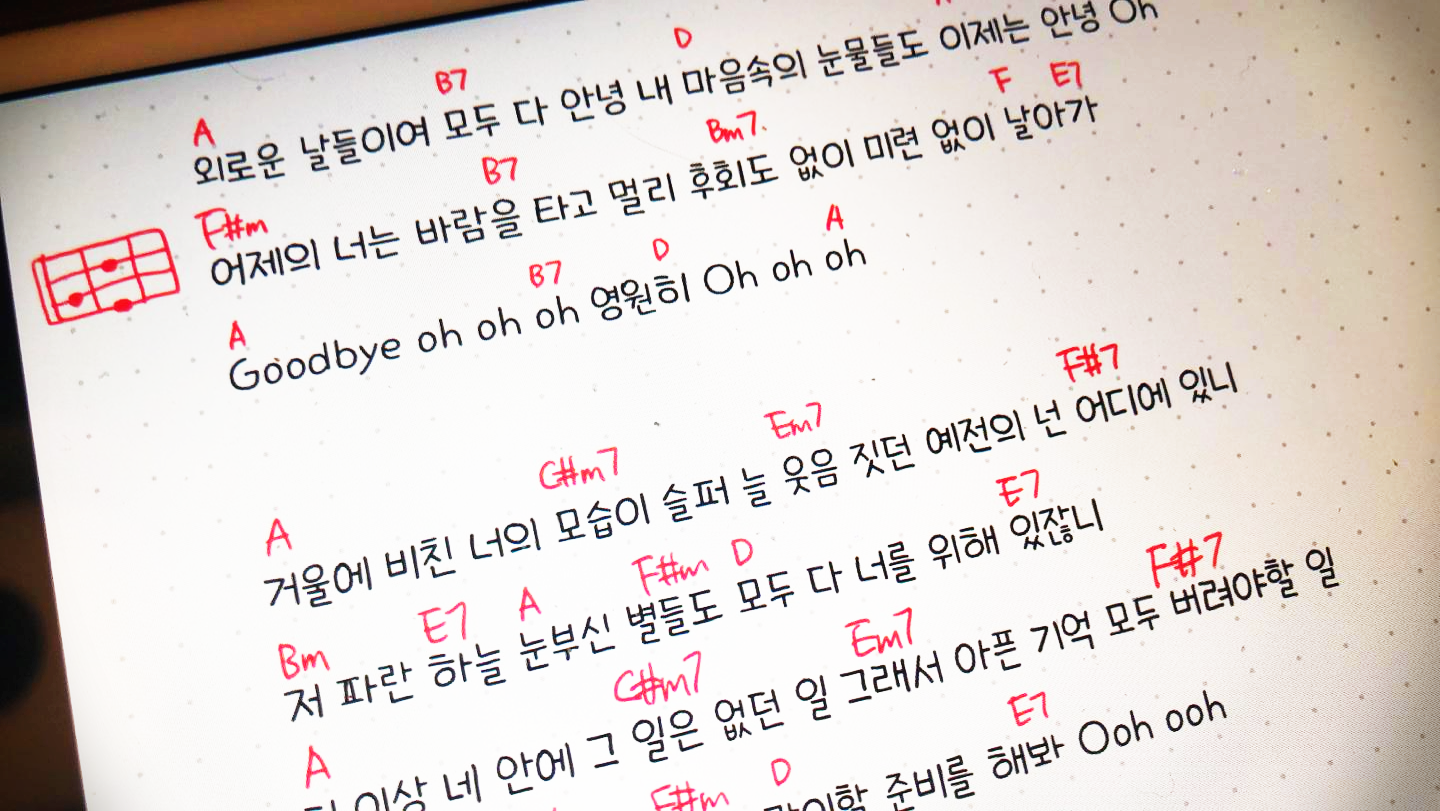 B7 D
A
외로운 날들이여 모두 다 안녕 내 마음속의 눈물들도 이제는 안녕 Oh
F#m B7 Bm7. F E7
어제의 너는 바람을 타고 멀리 후회도 없이 미련 없이 날아가
A B7 D A
Goodbye oh oh oh 영원히 Oh oh oh
A C#m7 Em7 F#7
거울에 비친 너의 모습이 슬퍼 늘 웃음 짓던 예전의 넌 어디에 있니
Bm E7 A F#m D E7
저 파란 하늘 눈부신 별들도 모두 다 너를 위해 있잖니
A C#m7 Em7 F#7
이상 네 안에 그 일은 없던 일 그래서 아픈 기억 모두 버려야할 일
F#m D E7
준비를 해봐 Ooh ooh